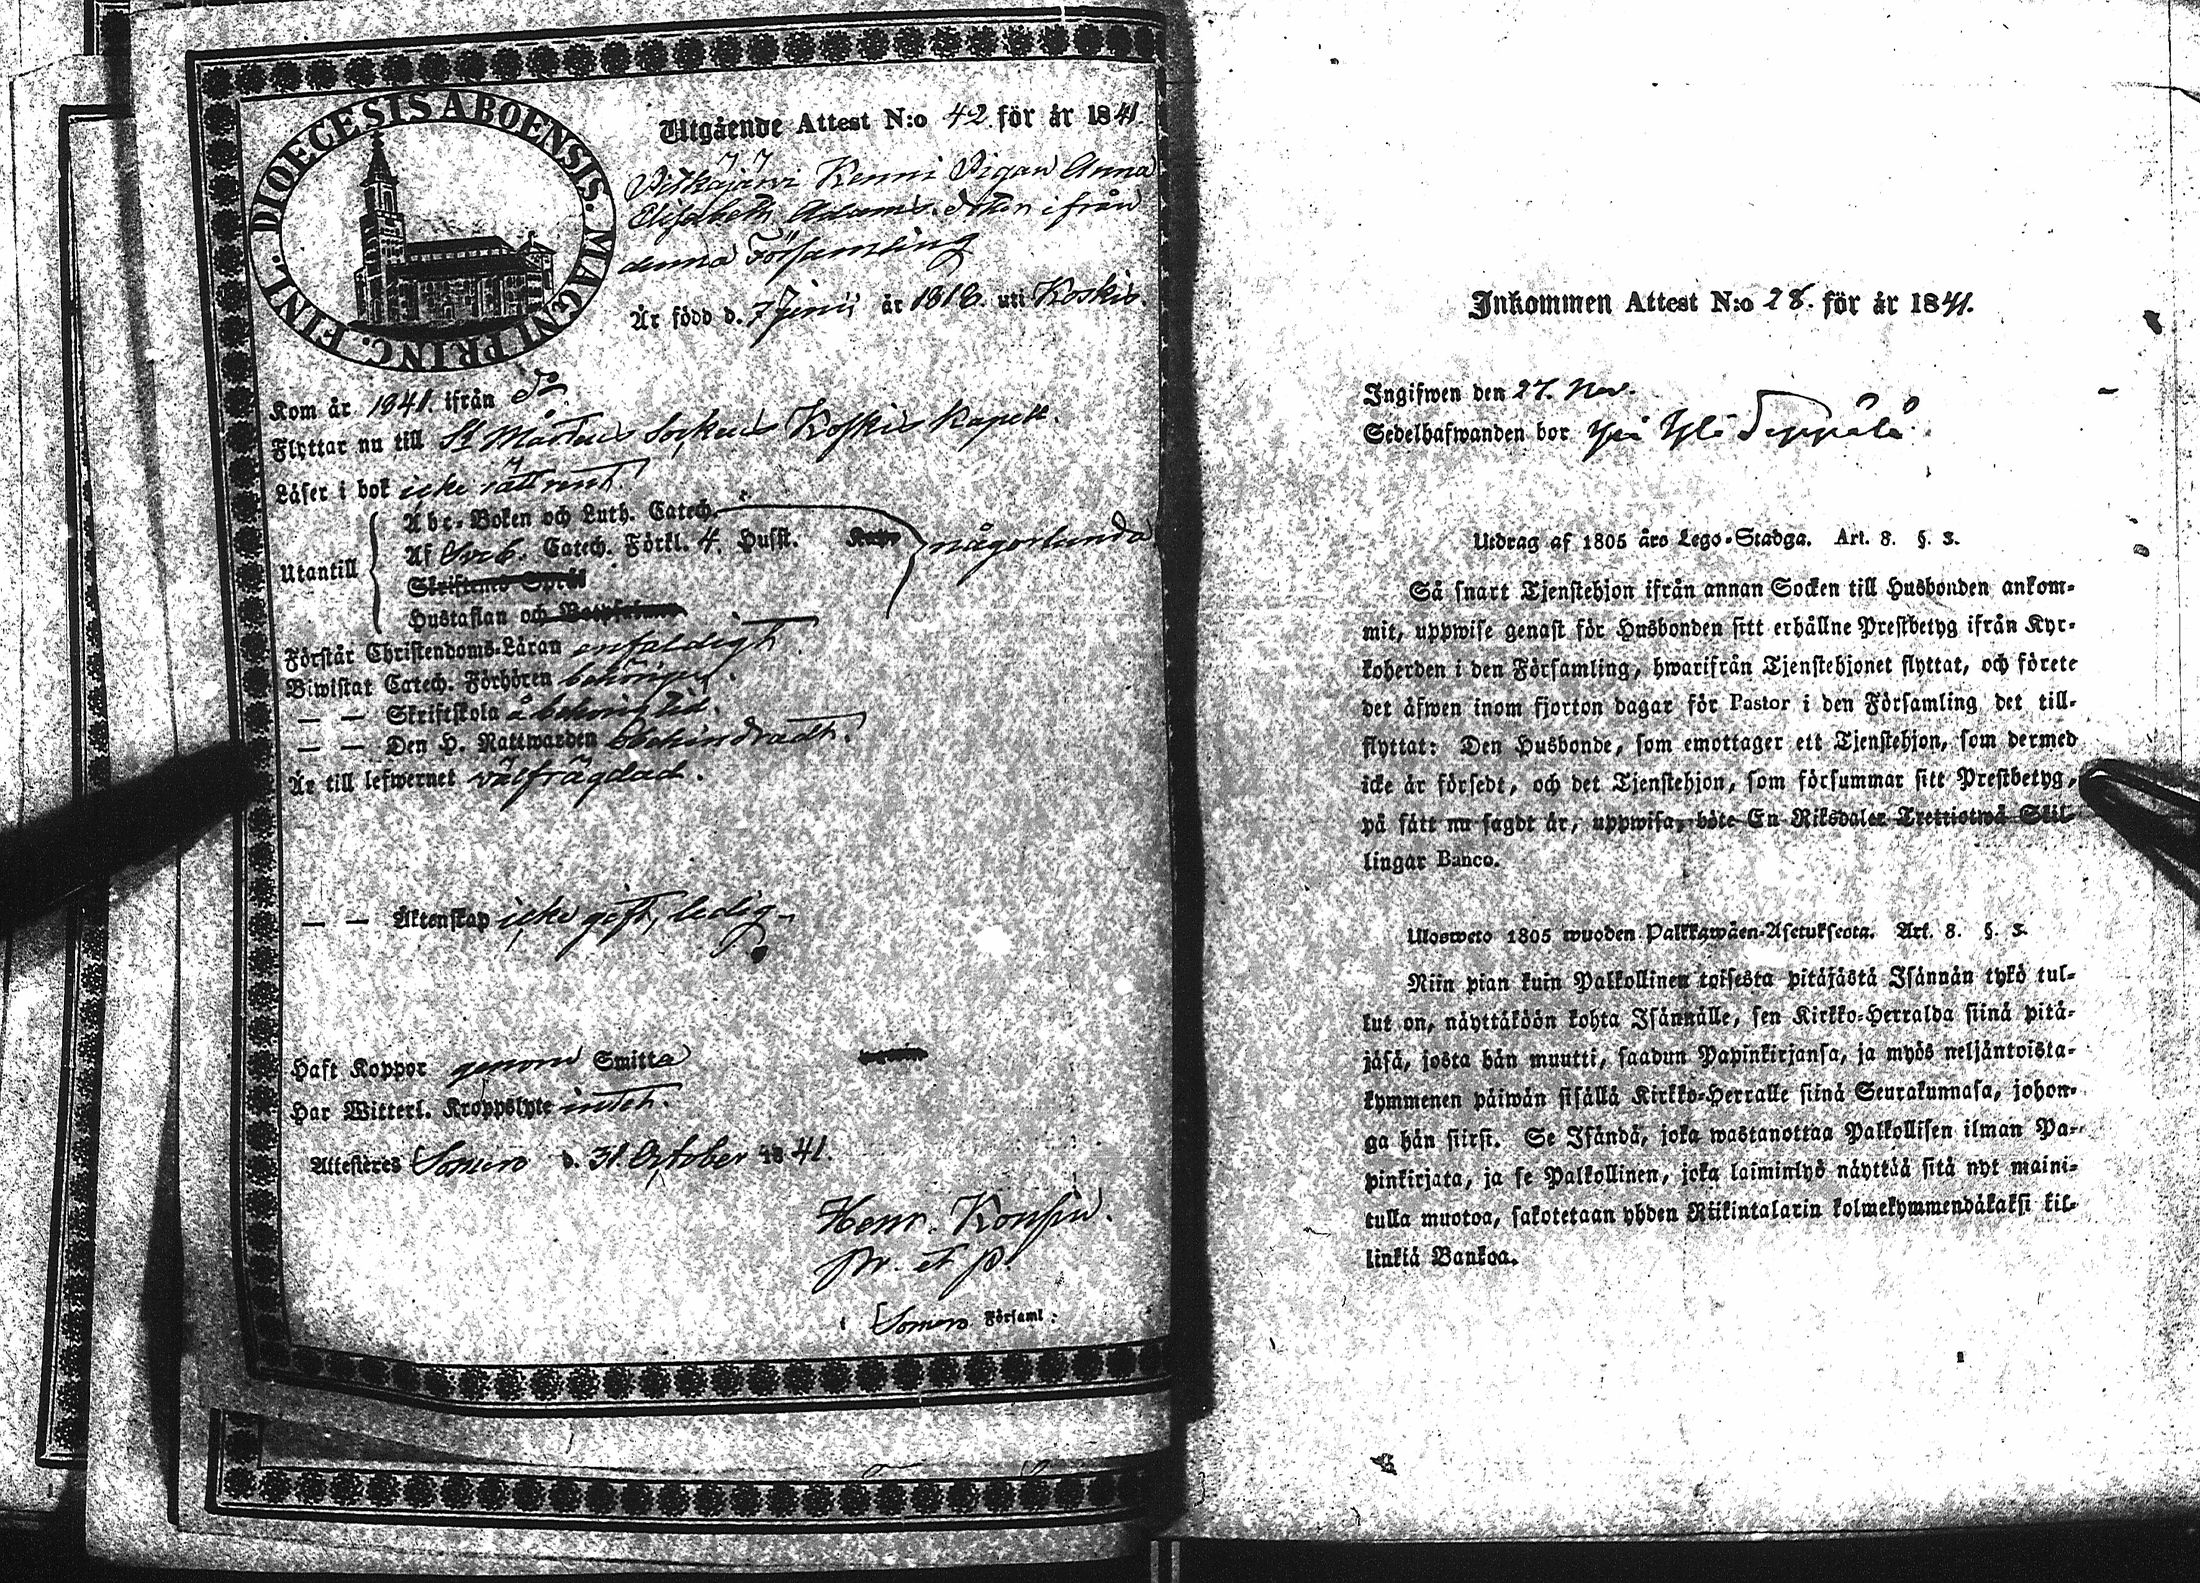 DIOECESIS ABOENSIS. MAGNI PRINC. FINL.
Utgående Attest N:o 42. för år 1841.
Pitkäjärvi Kenni Pigan Anna
Elisabeth Adams dotter ifrån
denna Församling
Är född d. 7 Junii år 1818. uti Koskis.
Kom år 1841. ifrån Do
Flyttar nu till St Mårtens Socken Koskis Kapell.
Läser i bok icke rätt rent.
Abc-Boken och Luth. Catech.
Af Sveb. Catech. Förkl. 4. Hufst. någorlunda
Utantill
Skriftens Språk
Hustaflan och Botpsalmer
Förstår Christendoms-Läran enfaldigt.
Biwistat Catech. Förhören behörigen.
— — Skriftskola å behörig tid.
— — Den H. Nattwarden obehindradt.
Är till lefwernet välfrägdad.
— — Äktenskap icke gift, ledig
Haft Koppor genom Smitta
Har Witterl. Kroppslyte intet.
Attesteres Somero d. 31. October 1841.
Henr. Konsin.
pr. et p.
i Somero Församl:
Inkommen Attest N:o 28. för år 1841.
Ingifwen den 27. Nov.
Sedelhafwanden bor Yli Seppälä.
Utdrag af 1805 års Lego-Stadga. Art. 8. §. 3.
Så snart Tjenstehjon ifrån annan Socken till Husbonden ankom-
mit, uppwise genast för Husbonden sitt erhållne Prestbetyg ifrån Kyr-
koherden i den Församling, hwarifrån Tjenstehjonet flyttat, och förete
det äfwen inom fjorton dagar för Pastor i den Församling det till-
flyttat: Den Husbonde, som emottager ett Tjenstehjon, som dermed
icke är försedt, och det Tjenstehjon, som försummar sitt Prestbetyg,
på sätt nu sagdt är, uppwisa, böte En Riksdaler Trettiotwå Skil-
lingar Banco.
Ulosweto 1805 wuoden Palkkawäen-Asetuksesta. Art. 8. §. 3.
Niin pian kuin Palkollinen toisesta pitäjästä Isännän tykö tul-
lut on, näyttäköön kohta Isännälle, sen Kirkko-Herralda siinä pitä-
jäsä, josta hän muutti, saadun Papinkirjansa, ja myös neljäntoista-
kymmenen päiwän sisällä Kirkko-Herralle siinä Seurakunnasa, johon-
ga hän siirsi. Se Isändä, joka wastanottaa Palkollisen ilman Pa-
pinkirjata, ja se Palkollinen, joka laiminlyö näyttää sitä nyt maini-
tulla muotoa, sakotetaan yhden Riikintalarin kolmekymmendäkaksi kil-
linkiä Bankoa.